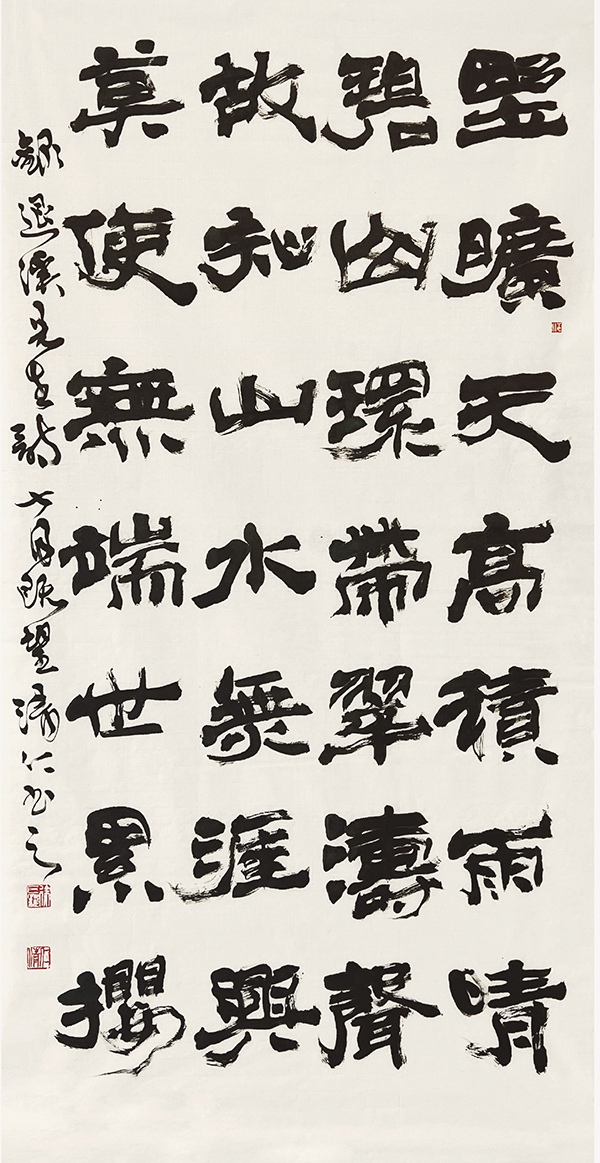 野曠天高積雨晴
碧山環帶翠濤聲
故知山水無涯興
莫使無端世累攖
錄退溪先生詩七月既望仁書之